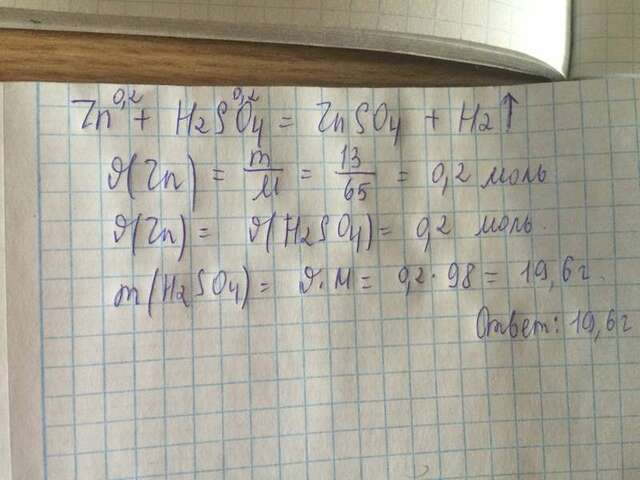 0,2 0,2
Zn + H2SO4 = ZnSO4 + H2↑
ϑ(Zn) = m/M = 13/65 = 0,2 моль
ϑ(Zn) = ϑ(H2SO4) = 0,2 моль.
m(H2SO4) = ϑ·M = 0,2·98 = 19,6 г.
Ответ: 19,6 г